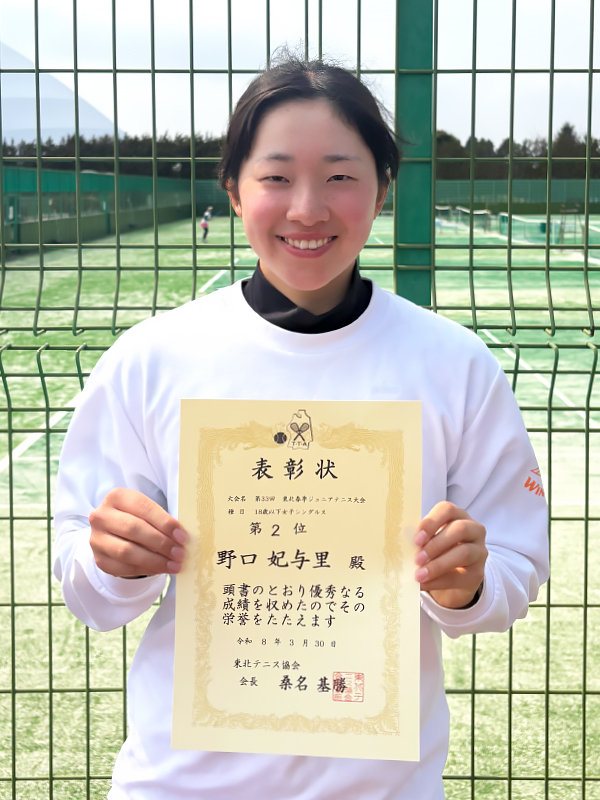 T・T・A
表彰状
大会名 第33回 東北春季ジュニアテニス大会
種目 18歳以下女子シングルス
第 2 位
野口 妃与里 殿
頭書のとおり優秀なる
成績を収めたのでその
栄誉をたたえます
令和 8 年 3 月 30 日
東北テニス協会
会長 桑名 基勝